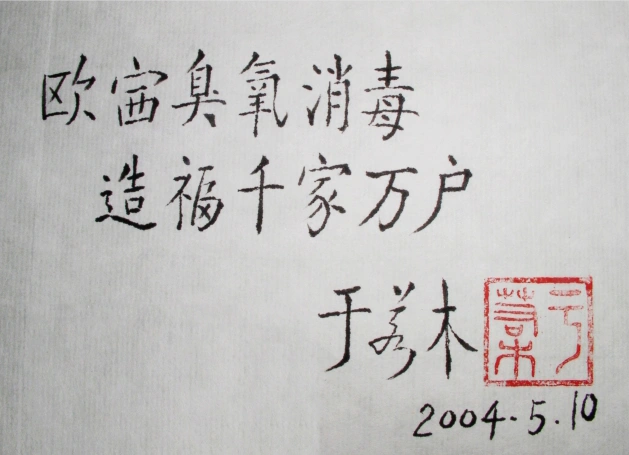 欧臭氧消毒
造福千家万户
于若木
2004.5.10